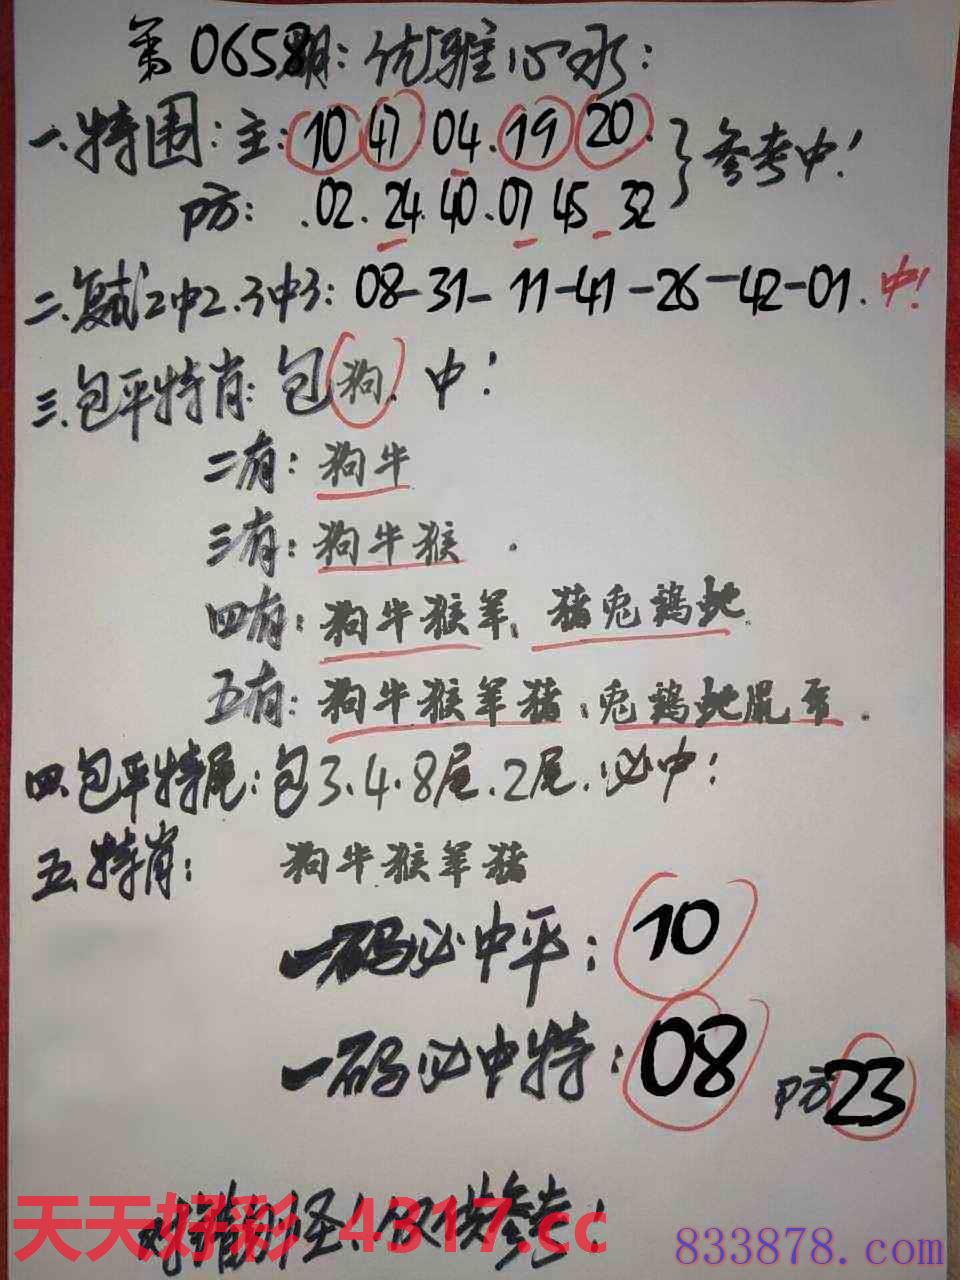 第0658期：优雅心水：
一.特围：主：10 47 04.19 20. 参考中！
防：.02.24.40.07 45 32
二.复试2中2.3中3：08-31-11-41-26-42-01.中！
三.包平特肖：包狗.中！
二有：狗牛
三有：狗牛猴.
四有：狗牛猴羊，猪兔鸡蛇
五有：狗牛猴羊猪；兔鸡蛇鼠.
四.包平特尾：包3.4.8尾.2尾.必中！
五.特肖：狗牛.猴羊猪
一码必中平：10
一码必中特：08 防23
对错勿怪！仅供参考！
天天好彩 4317.cc
833878.com